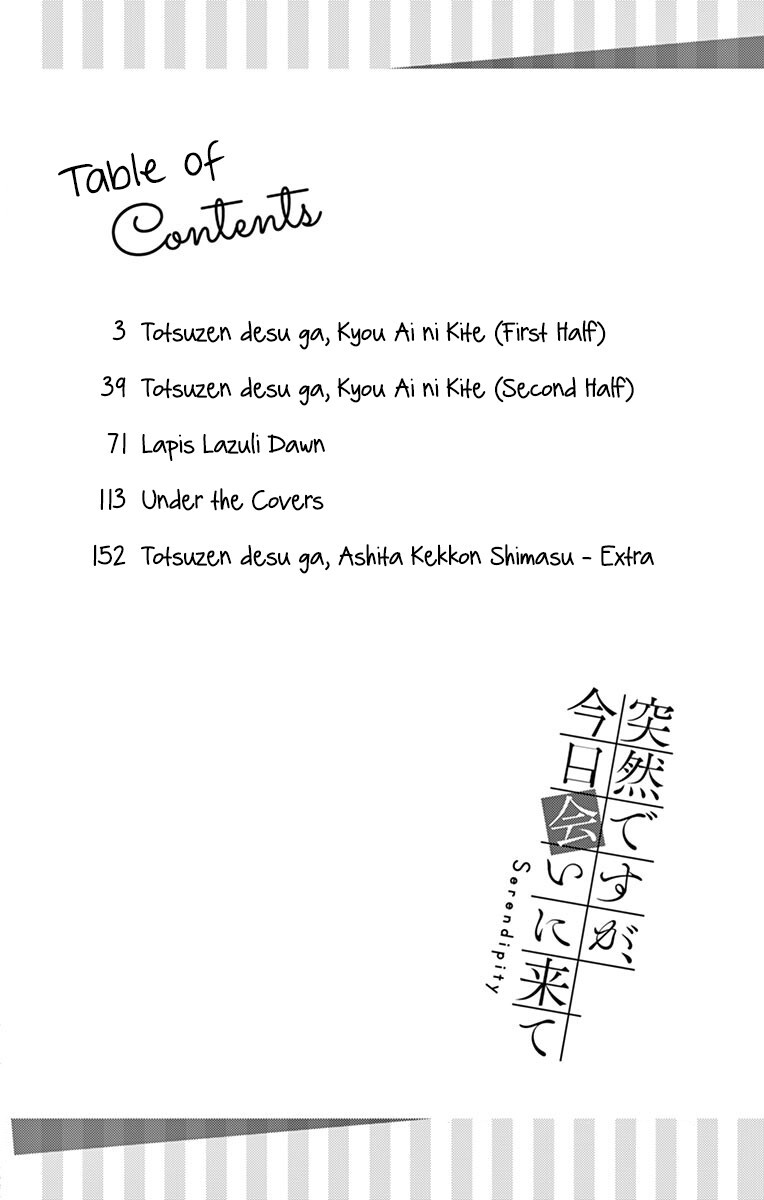 Table of
Contents
3 Totsuzen desu ga, Kyou Ai ni Kite (First Half)
39 Totsuzen desu ga, Kyou Ai ni Kite (Second Half)
71 Lapis Lazuli Dawn
113 Under the Covers
152 Totsuzen desu ga, Ashita Kekkon Shimasu - Extra
突然ですが、
今日会いに来て
Serendipity